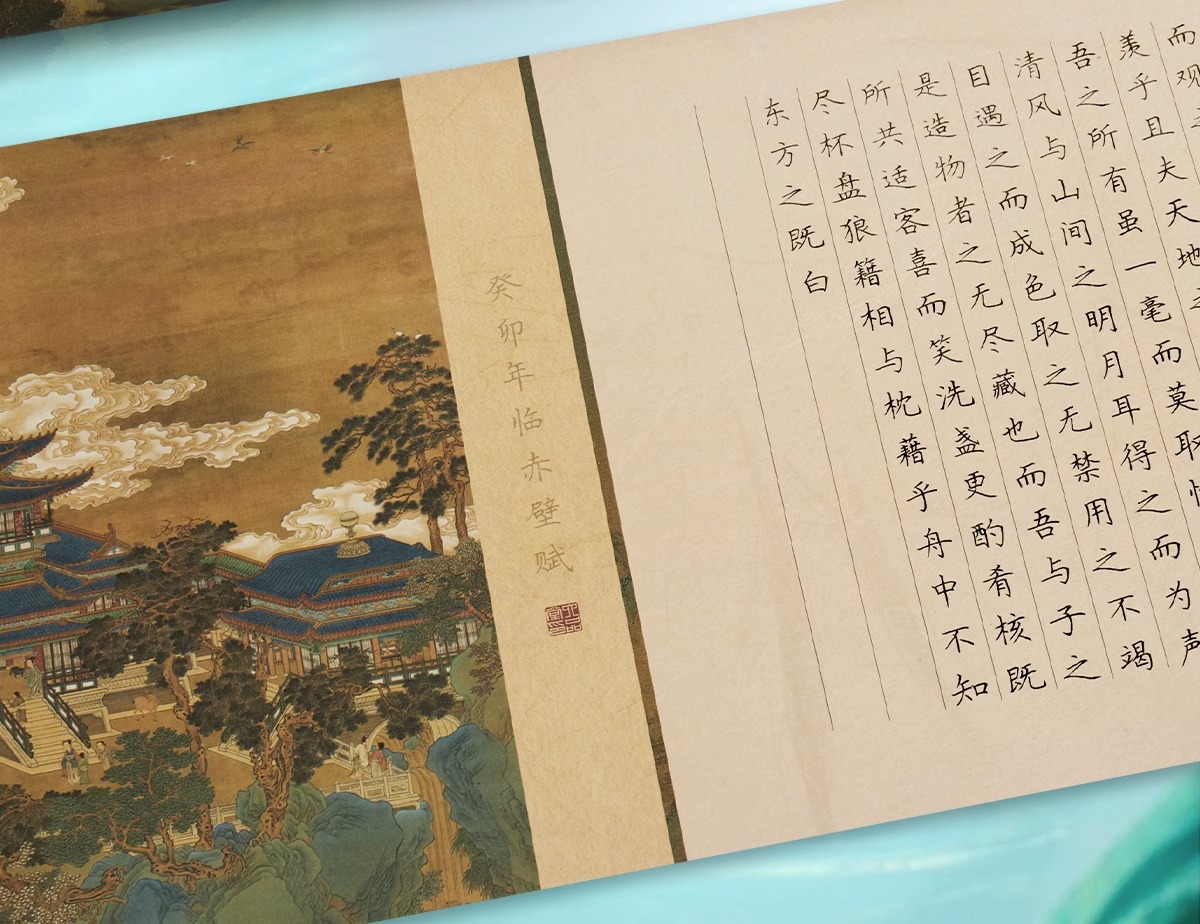 而观
羡乎且夫天地
吾之所有虽一毫而莫取
清风与山间之明月耳得之而为声
目遇之而成色取之无禁用之不竭
是造物者之无尽藏也而吾与子之
所共适客喜而笑洗盏更酌肴核既
尽杯盘狼籍相与枕藉乎舟中不知
东方之既白
癸卯年临赤壁赋